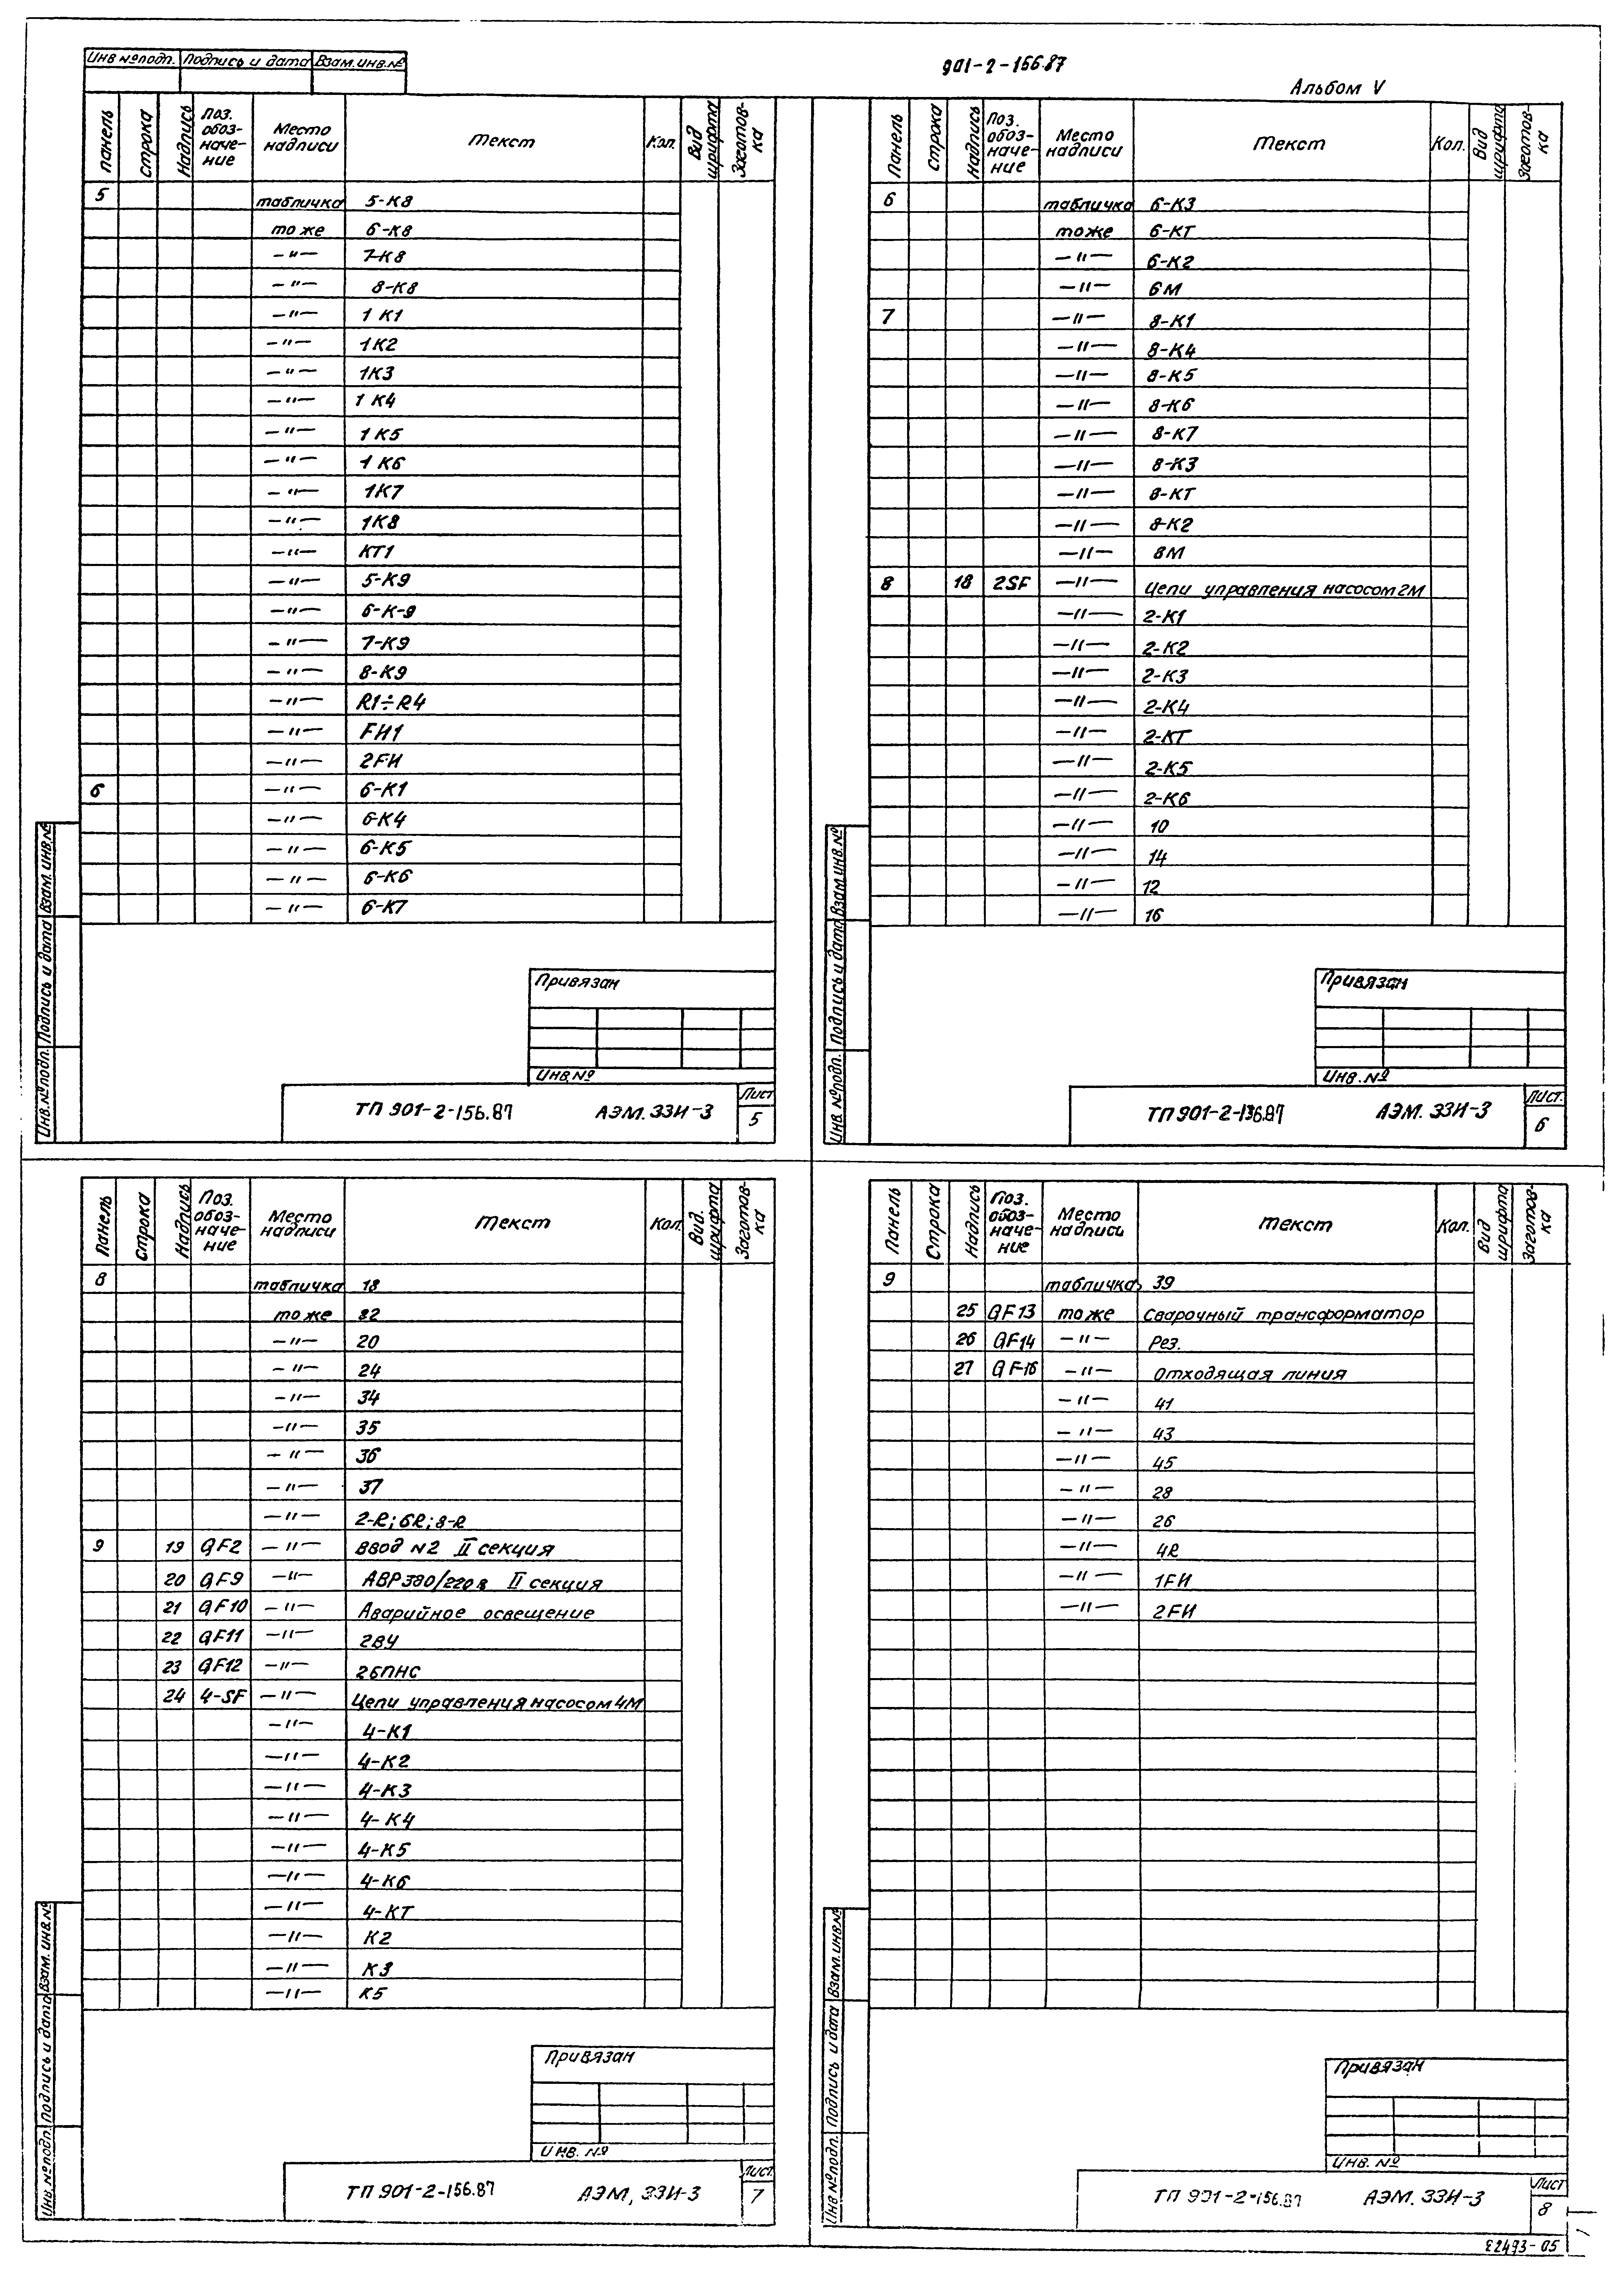 Инв № подл. Подпись и дата Взам. инв. №
901-2-156.87
Альбом V
Панель Строка Надпись Поз. обоз-наче-ние Место надписи Текст Кол. Вид шрифта Заготов-ка
5 табличка 5-К8
то же 6-К8
—"— 7-К8
—"— 8-К8
—"— 1 К1
—"— 1К2
—"— 1К3
—"— 1 К4
—"— 1 К5
—"— 1 К6
—"— 1К7
—"— 1К8
—"— КТ1
—"— 5-К9
—"— 6-К-9
—"— 7-К9
—"— 8-К9
—"— R1÷R4
—"— FИ1
—"— 2FИ
6 —"— 6-К1
—"— 6-К4
—"— 6-К5
—"— 6-К6
—"— 6-К7
Привязан
Инв №
ТП 901-2-156.87 АЭМ. ЗЗИ-3 Лист 5
Инв. № подл. Подпись и дата Взам. инв. №
Панель Строка Надпись Поз. обоз-наче-ние Место надписи Текст Кол. Вид шрифта Заготов-ка
6 табличка 6-К3
то же 6-КТ
—"— 6-К2
—"— 6М
7 —"— 8-К1
—"— 8-К4
—"— 8-К5
—"— 8-К6
—"— 8-К7
—"— 8-К3
—"— 8-КТ
—"— 8-К2
—"— 8М
8 18 2SF —"— Цепи управления насосом 2М
—"— 2-К1
—"— 2-К2
—"— 2-К3
—"— 2-К4
—"— 2-КТ
—"— 2-К5
—"— 2-К6
—"— 10
—"— 14
—"— 12
—"— 16
Привязан
Инв. №
ТП 901-2-136.87 АЭМ. ЗЗИ-3 Лист. 6
Инв. № подл. Подпись и дата Взам. инв. №
Панель Строка Надпись Поз. обоз-наче-ние Место надписи Текст Кол. Вид. шрифта Заготов-ка
8 табличка 18
то же 82
—"— 20
—"— 24
—"— 34
—"— 35
—"— 36
—"— 37
—"— 2-R; 6R; 8-R
9 19 QF2 —"— Ввод N2 II секция
20 QF9 —"— АВР 380/220 в II секция
21 QF10 —"— Аварийное освещение
22 QF11 —"— 2ВУ
23 QF12 —"— 2БПНС
24 4-SF —"— Цепи управления насосом 4М
—"— 4-К1
—"— 4-К2
—"— 4-К3
—"— 4-К4
—"— 4-К5
—"— 4-К6
—"— 4-КТ
—"— К2
—"— К3
—"— К5
Привязан
Инв. №
ТП 901-2-156.87 АЭМ, ЗЗИ-3 Лист 7
Инв. № подл. Подпись и дата Взам. инв. №
Панель Строка Надпись Поз. обоз-наче-ние Место надпись Текст Кол. Вид шрифта Заготов-ка
9 табличка 39
25 QF13 то же Сварочный трансформатор
26 QF14 —"— Рез.
27 QF-16 —"— Отходящая линия
—"— 41
—"— 43
—"— 45
—"— 28
—"— 26
—"— 4R
—"— 1FИ
—"— 2FИ
Привязан
Инв. №
ТП 901-2-156.87 АЭМ. ЗЗИ-3 Лист 8
Инв № подл. Подпись и дата Взам. инв. №
22473-05